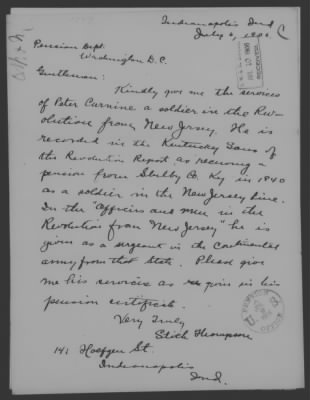 Indianapolis Ind
July 6, 190
Pension Dept.
Washington D.C.
Gentlemen:
Kindly give me the services
of Peter Carnine a soldier in the Rev-
olution from New Jersey. He is
recorded in the Kentucky Sons of
the Revolution Report as receiving a
pension from Shelby Co. Ky in 1840
as a soldier in the New Jersey line.
In the "Officers and Men in the
Revolution from New Jersey" he is
given as a sergeant in the Continental
army, from that State. Please give
me his services as given in his
pension certificate.
Very Truly
Stith Thompson
141 Hoefgen St.
Indianapolis
Ind.